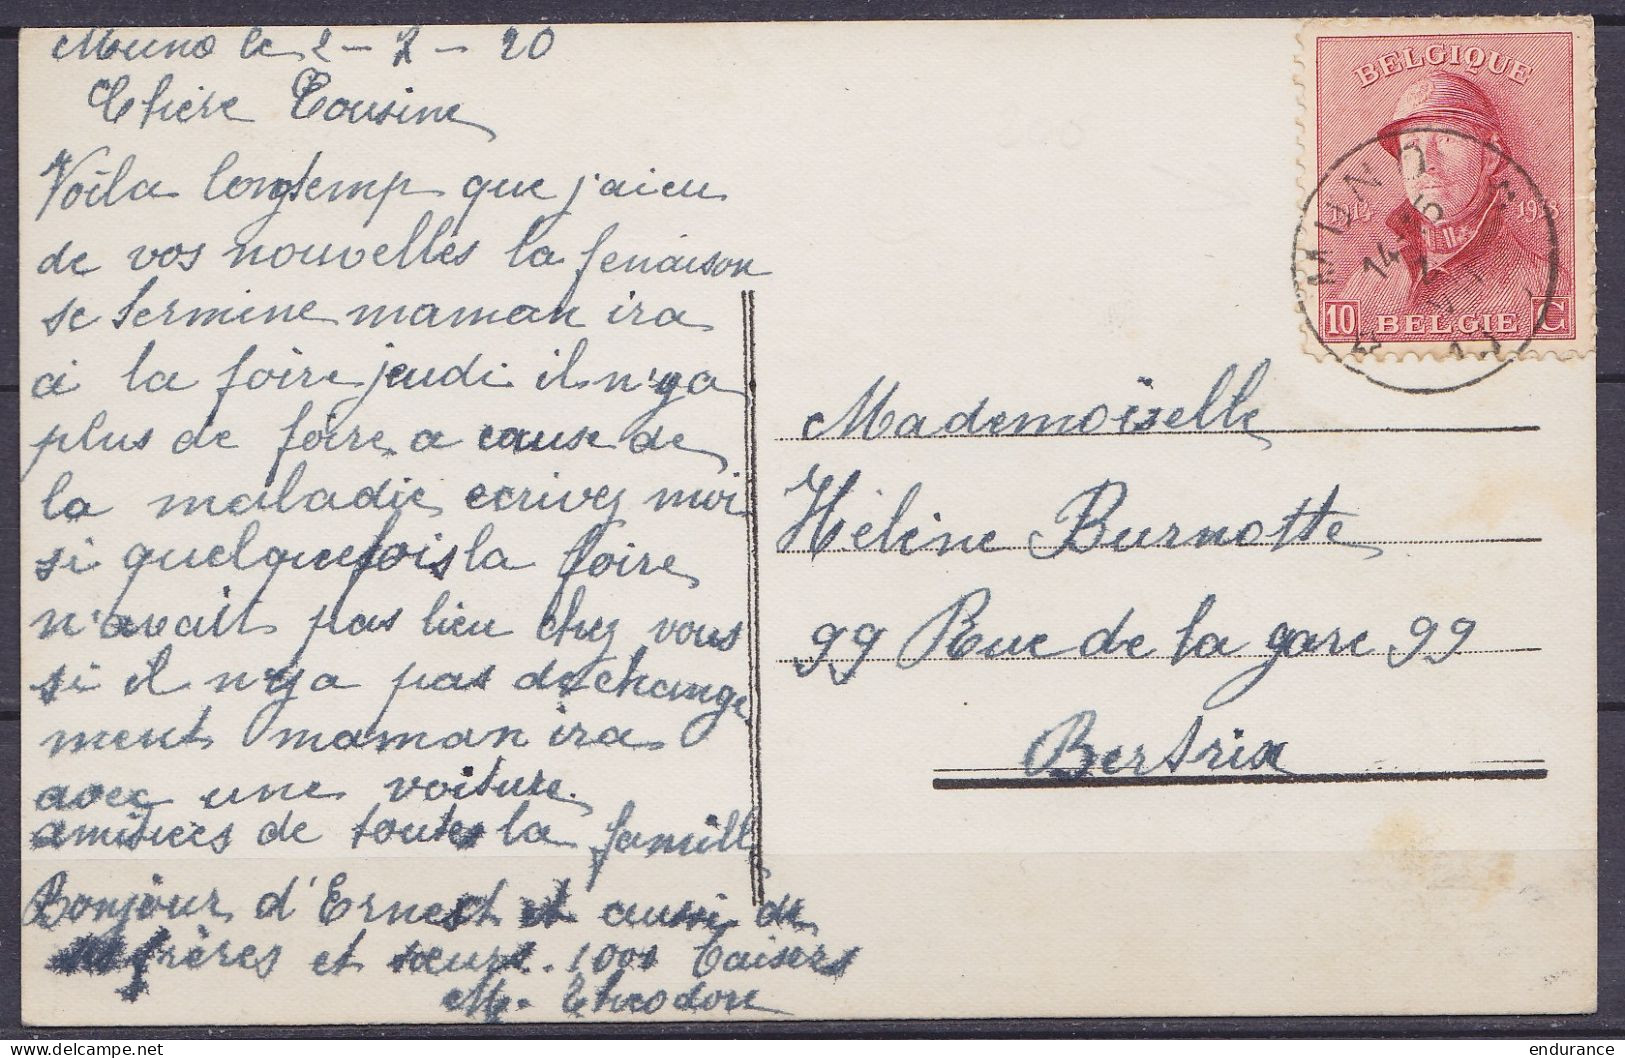 Muno le 2 - 7 - 20
Chère Cousine
Voila longtemp que j'ai eu
de vos nouvelles la fenaison
se termine maman ira
a la foire jeudi il n'ya
plus de foire a cause de
la maladie ecrivez moi
si quelquefois la foire
n'avait pas lieu chez vous
si il n'ya pas de change
ment maman ira
avec une voiture.
amitiees de toutes la famill
Bonjour d'Ernest et aussi de
frères et sœurs. 1000 Baisers
M. Theodore
BELGIQUE
1914 1918
10 BELGIE C
MUNO
14-15
Mademoiselle
Hélène Burnotte
99 Rue de la gare 99
Bertrix
delcampe.net
endurance